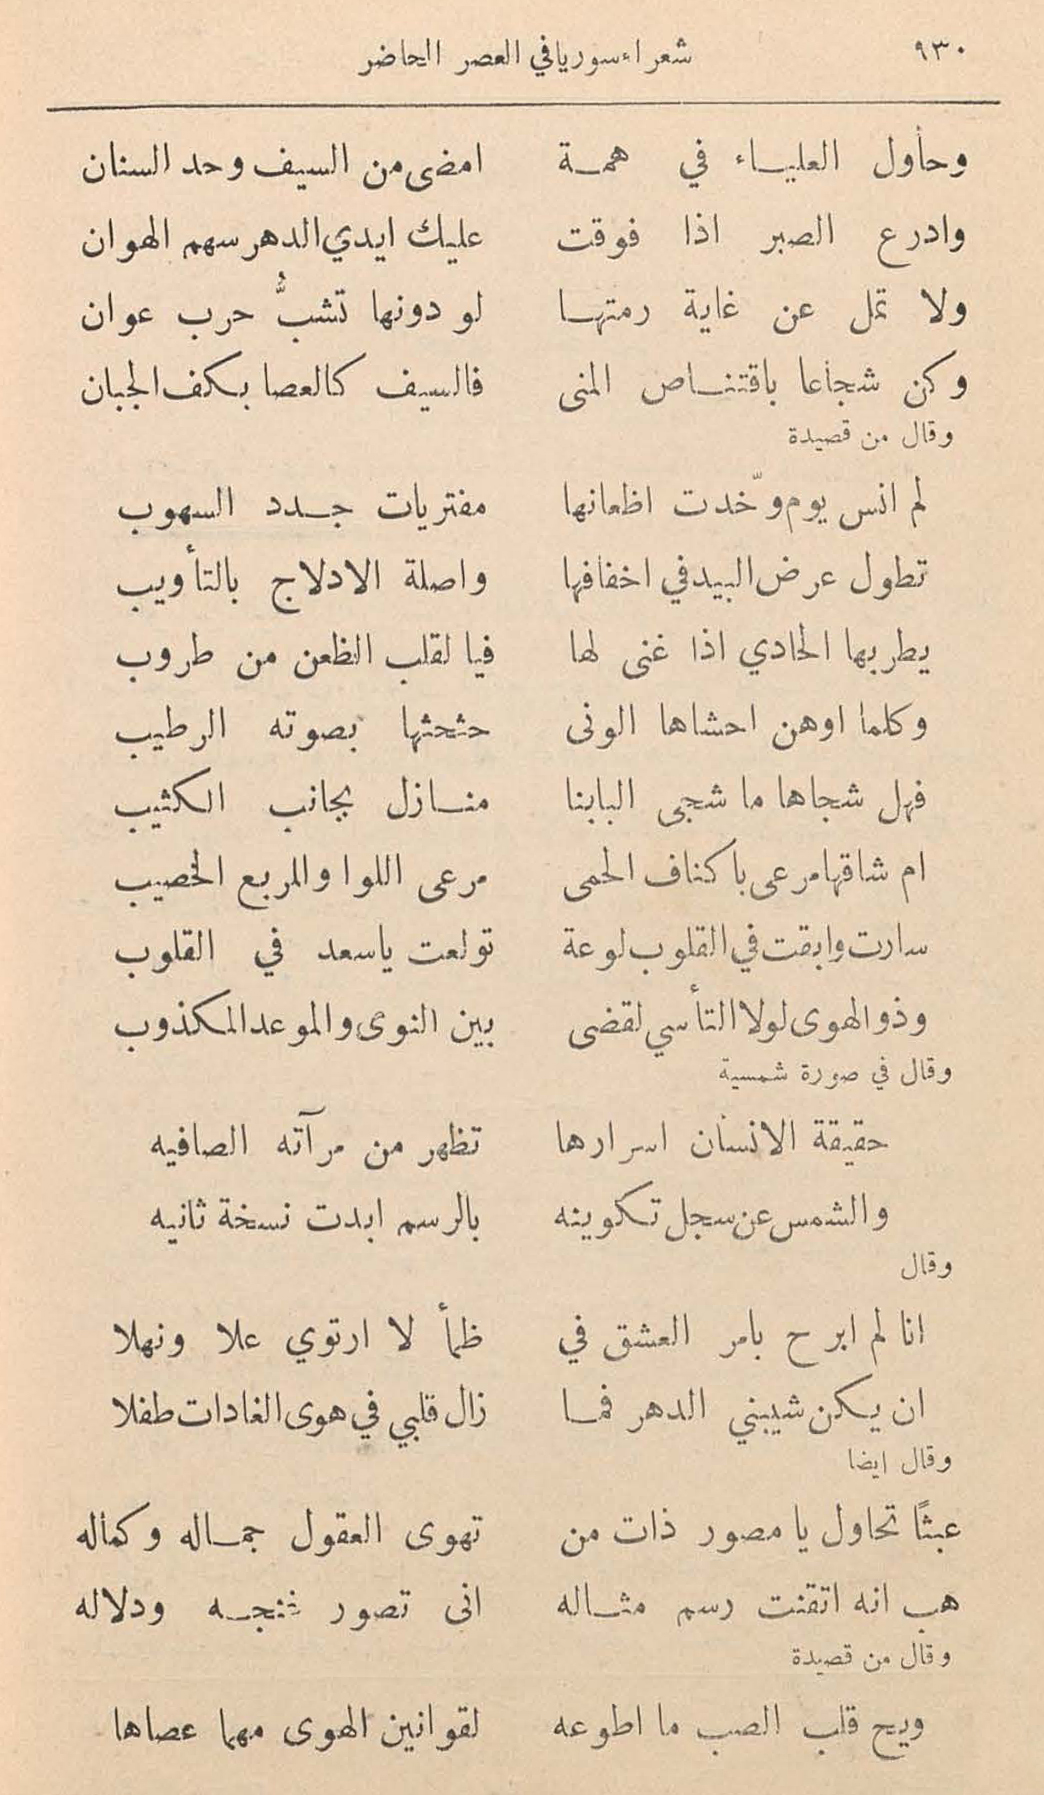 ٩٣٠ شعراء سوريا في العصر الحاضر
وحاول العلياء في همة امضى من السيف وحد السنان
وادرع الصبر اذا فوقت عليك ايدي الدهر سهم الهوان
ولا تمل عن غاية رمتها لو دونها تشبُّ حرب عوان
وكن شجاعا باقتناص المنى فالسيف كالعصا بكف الجبان
وقال من قصيدة
لم انس يوم وخّدت اظعانها مفتريات جدد السهوب
تطول عرض البيد في اخفافها واصلة الادلاج بالتأويب
يطربها الحادي اذا غنى لها فيا لقلب الظعن من طروب
وكلما اوهن احشاها الونى حثحثها بصوته الرطيب
فهل شجاها ما شجى البابنا منازل بجانب الكثيب
ام شاقها مرعى باكناف الحمى مرعى اللوا والمربع الخصيب
سارت وابقت في القلوب لوعة تولعت ياسعد في القلوب
وذو الهوى لولا التأسي لقضى بين النوى والموعد المكذوب
وقال في صورة شمسية
حقيقة الانسان اسرارها تظهر من مرآته الصافيه
والشمس عن سجل تكوينه بالرسم ابدت نسخة ثانيه
وقال
انا لم ابرح بامر العشق في ظمأ لا ارتوي علا ونهلا
ان يكن شيبني الدهر فما زال قلبي في هوى الغادات طفلا
وقال ايضا
عبثًا تحاول يا مصور ذات من تهوى العقول جماله وكماله
هب انه اتقنت رسم مثاله انى تصور غنجه ودلاله
وقال من قصيدة
ويح قلب الصب ما اطوعه لقوانين الهوى مهما عصاها